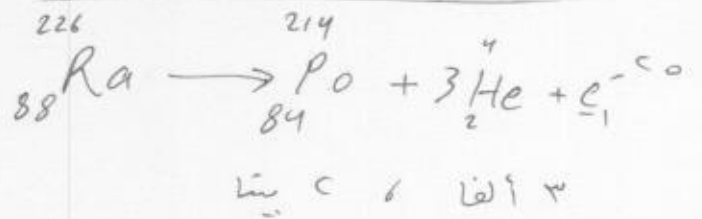 ²²⁶₈₈Ra → ²¹⁴₈₄Po + 3⁴₂He + ٢ ⁰₋₁e⁻
٣ ألفا ، ٢ بيتا